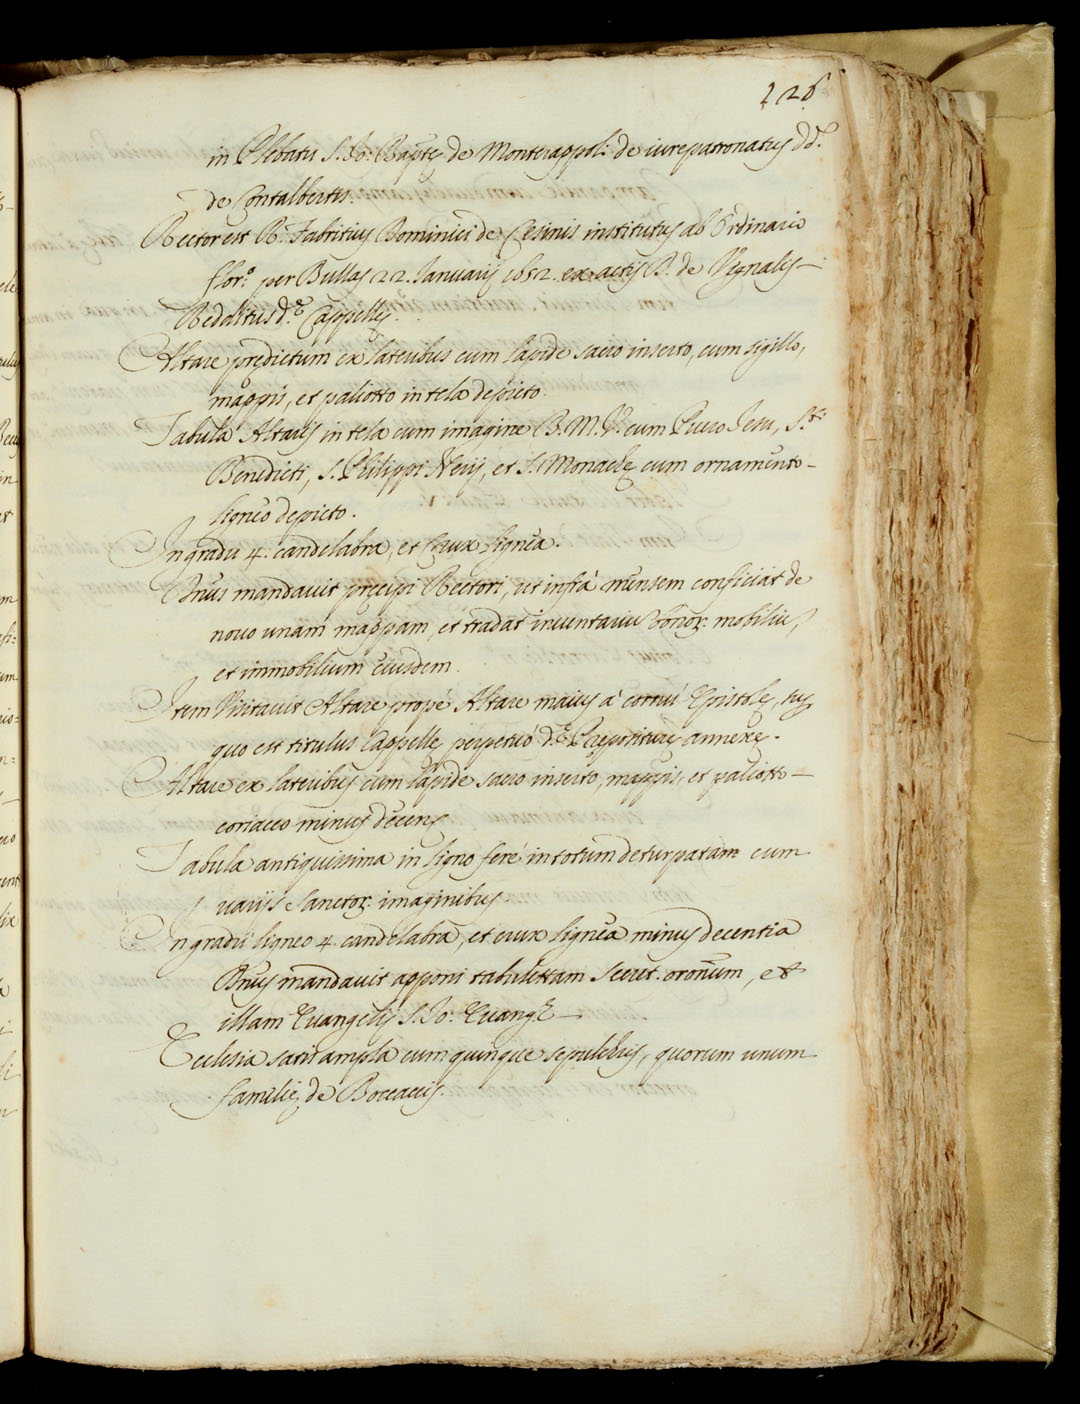 126
in Plebatu S. Jo: Baptę de Monterappoli de iurepatronatus DD.
de Gontalbertis.
Rector est R. Fabritius Dominici de Cesinis institutus ab Ordinario
flor.º per Bullas 22. Januarij 1652. ex actis B. de Vignalis—
Redditus d.ę Cappellę.
Altare prędictum ex lateribus cum lapide sacro inserto, cum sigillo,
mappis, et paliotto in tela depicto.
Tabula Altaris in tela cum imagine B. M. V. cum Puero Jesu, S.ti
Benedicti, S. Philippi Nerij, et S. Monachę cum ornamento-
ligneo depicto.
In gradu 4. candelabra, et Crux lignea.
Dnus mandavit pręcipi Rectori, ut infrà mensem conficiat de
novo unam mappam, et tradat inventariu bonor. mobiliu,
et immobilium eiusdem.
Item Visitavit Altare propè Altare maius à cornu Epistolę, sub
quo est titulus Cappellę perpetuò d.ę Pręposturę annexę.
Altare ex lateribus cum lapide sacro inserto, mappis, et paliotto—
coriaceo minus decens
Tabula antiquissima in ligno ferè in totum deturpatam cum
varijs Sanctor. imaginibus
In gradu ligneo 4. candelabra, et crux lignea minus decentia
Dnus mandavit apponi tabulettam Secret. oronum, et
illam Evangelij S. Jo: Evang.ę—
Ecclesia satis ampla cum quinque sepulchris, quorum unum
familię de Boccaccis.